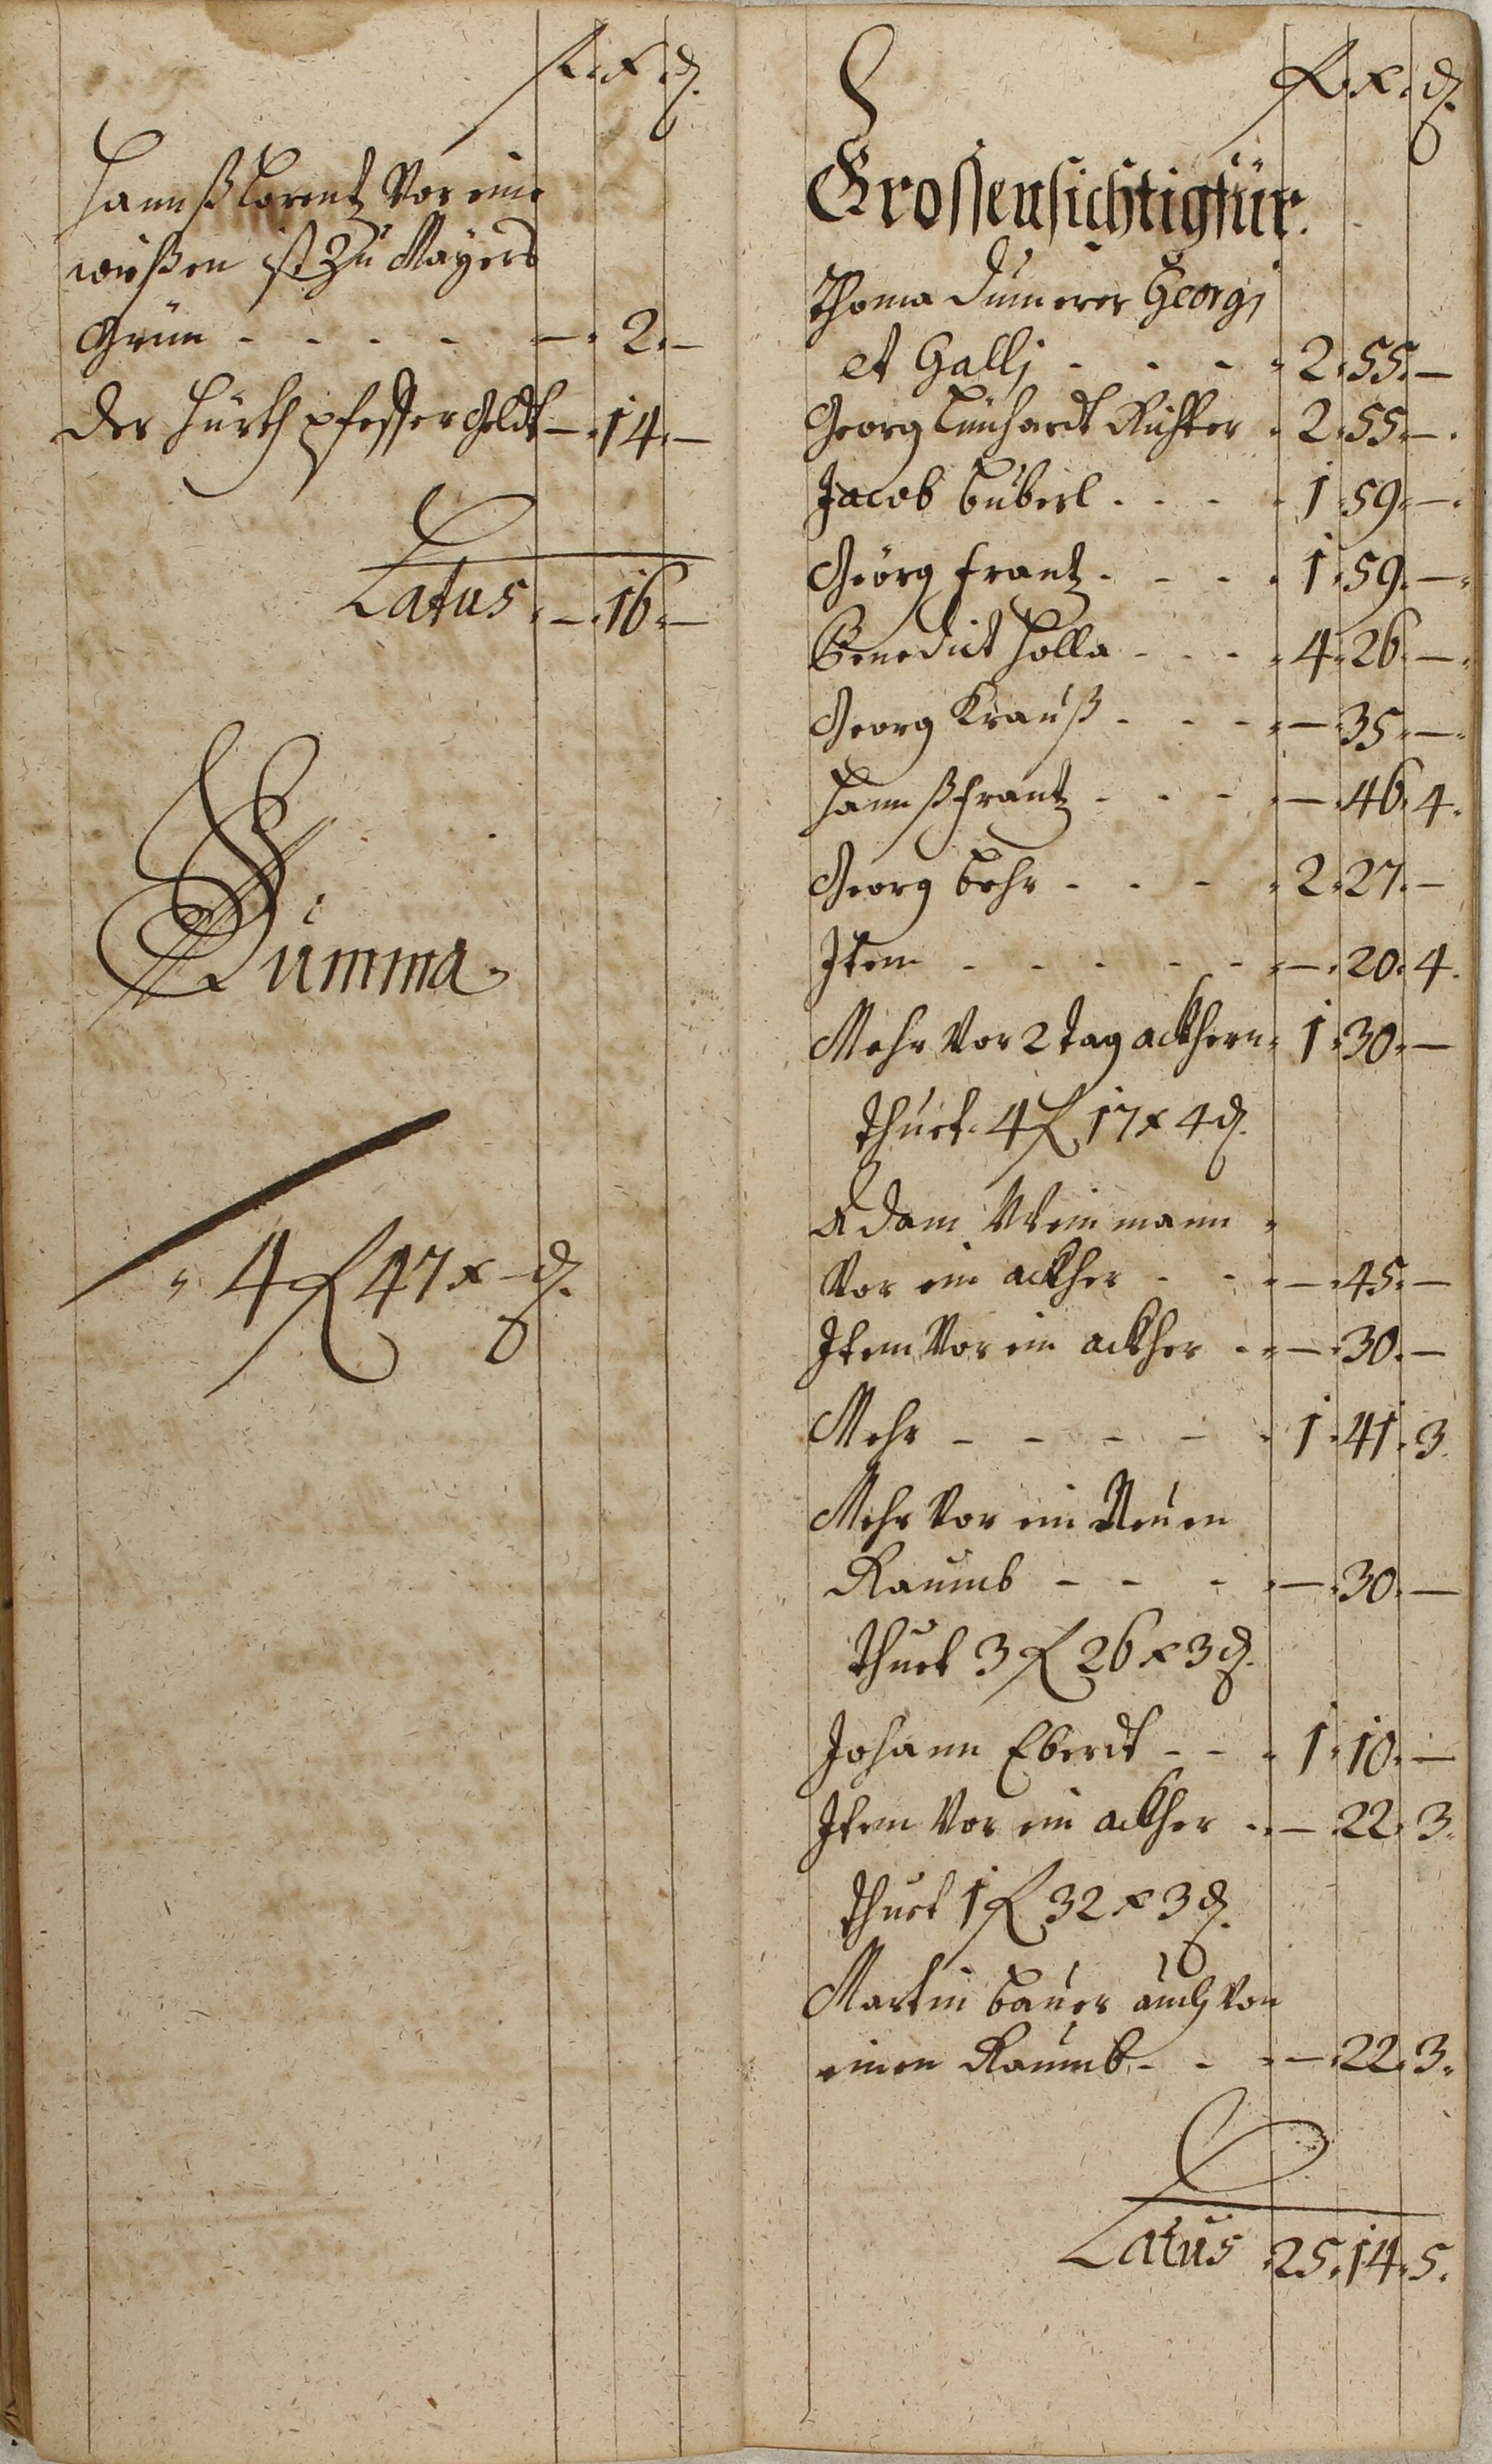 f. x. d.
Hannß Lorentz Vor eine
wießen ist Zu Mayers
Grün - - - - — . 2. —
Der Hürth pfesser Geldt — . 14. —
Latus. — . 16. —
Summa.
4 f 47 x — d.
f. x. d.
Grossensichtigfür.
Thoma Dumerer Georgj
et Gallj - - - 2. 55. —
Georg Linhardt Richter . 2. 55. —
Jacob Büberl . - - 1. 59. —
Geörg Frantz . - - 1. 59. —
Benedict Holla - - - 4. 26. —
Georg Krauß . - - — . 35. —
Hannß Frantz - - - — . 46. 4.
Georg Behr - - - 2. 27. —
Item - - - - - — . 20. 4.
Mehr Vor 2 tag ackhern . 1. 30. —
thuet. 4 f 17 x 4 d.
Adam Weinmann
Vor ein ackher - - — . 45. —
Item Vor ein ackher - — . 30. —
Mehr - - - - 1. 41. 3.
Mehr Vor ein Neuen
Raumb - - - — . 30. —
thuet 3 f 26 x 3 d.
Johann Eberdt - - 1. 10. —
Item Vor ein ackher . — . 22. 3.
thuet 1 f 32 x 3 d.
Martin Bauer auch Von
einen Raumb - - — . 22. 3.
Latus 25. 14. 5.